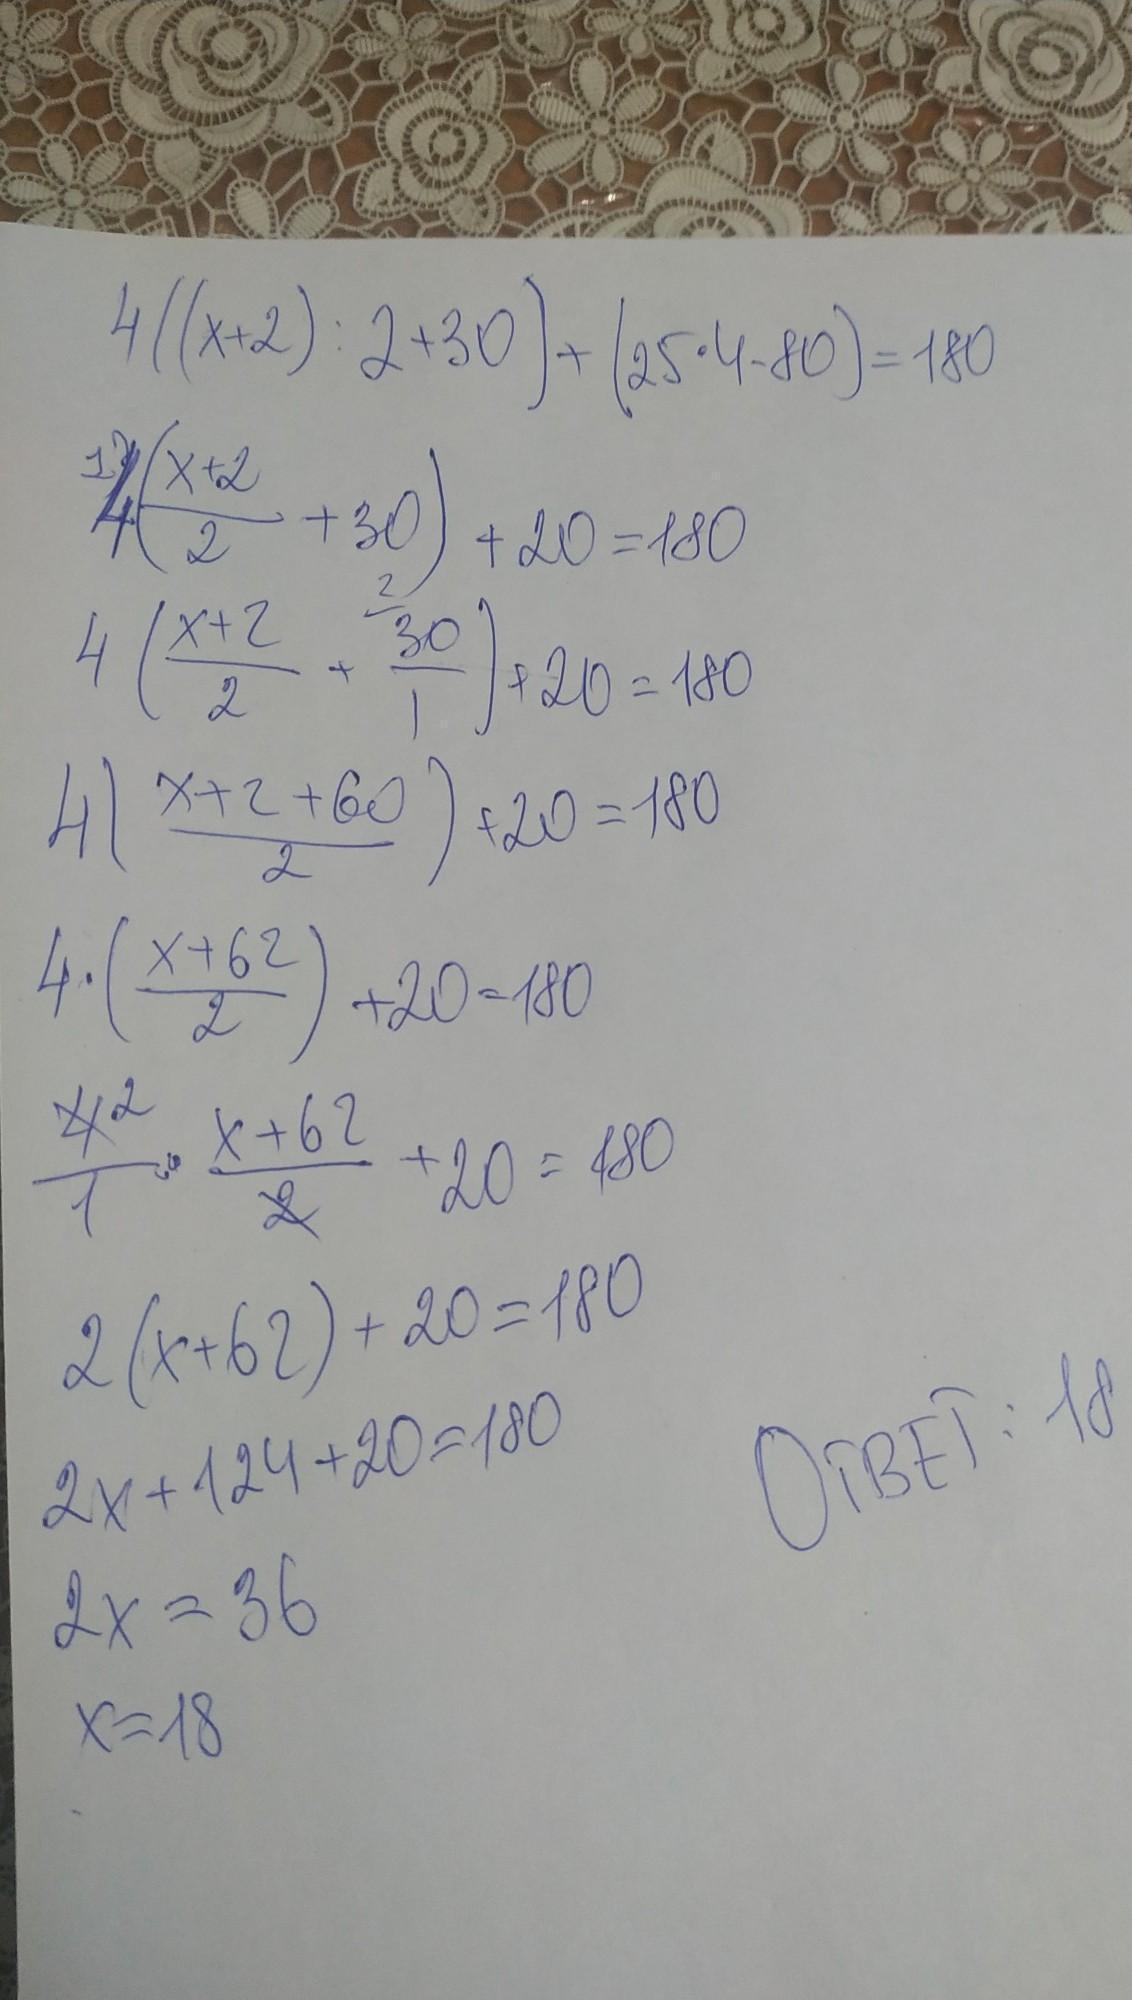 4((x+2):2+30)+(25·4-80)=180
4(x+2/2+30)+20=180
4(x+2/2+30/1)+20=180
4(x+2+60/2)+20=180
4·(x+62/2)+20=180
4²/1·x+62/2+20=180
2(x+62)+20=180
2x+124+20=180
2x=36
x=18
ОТВЕТ: 18